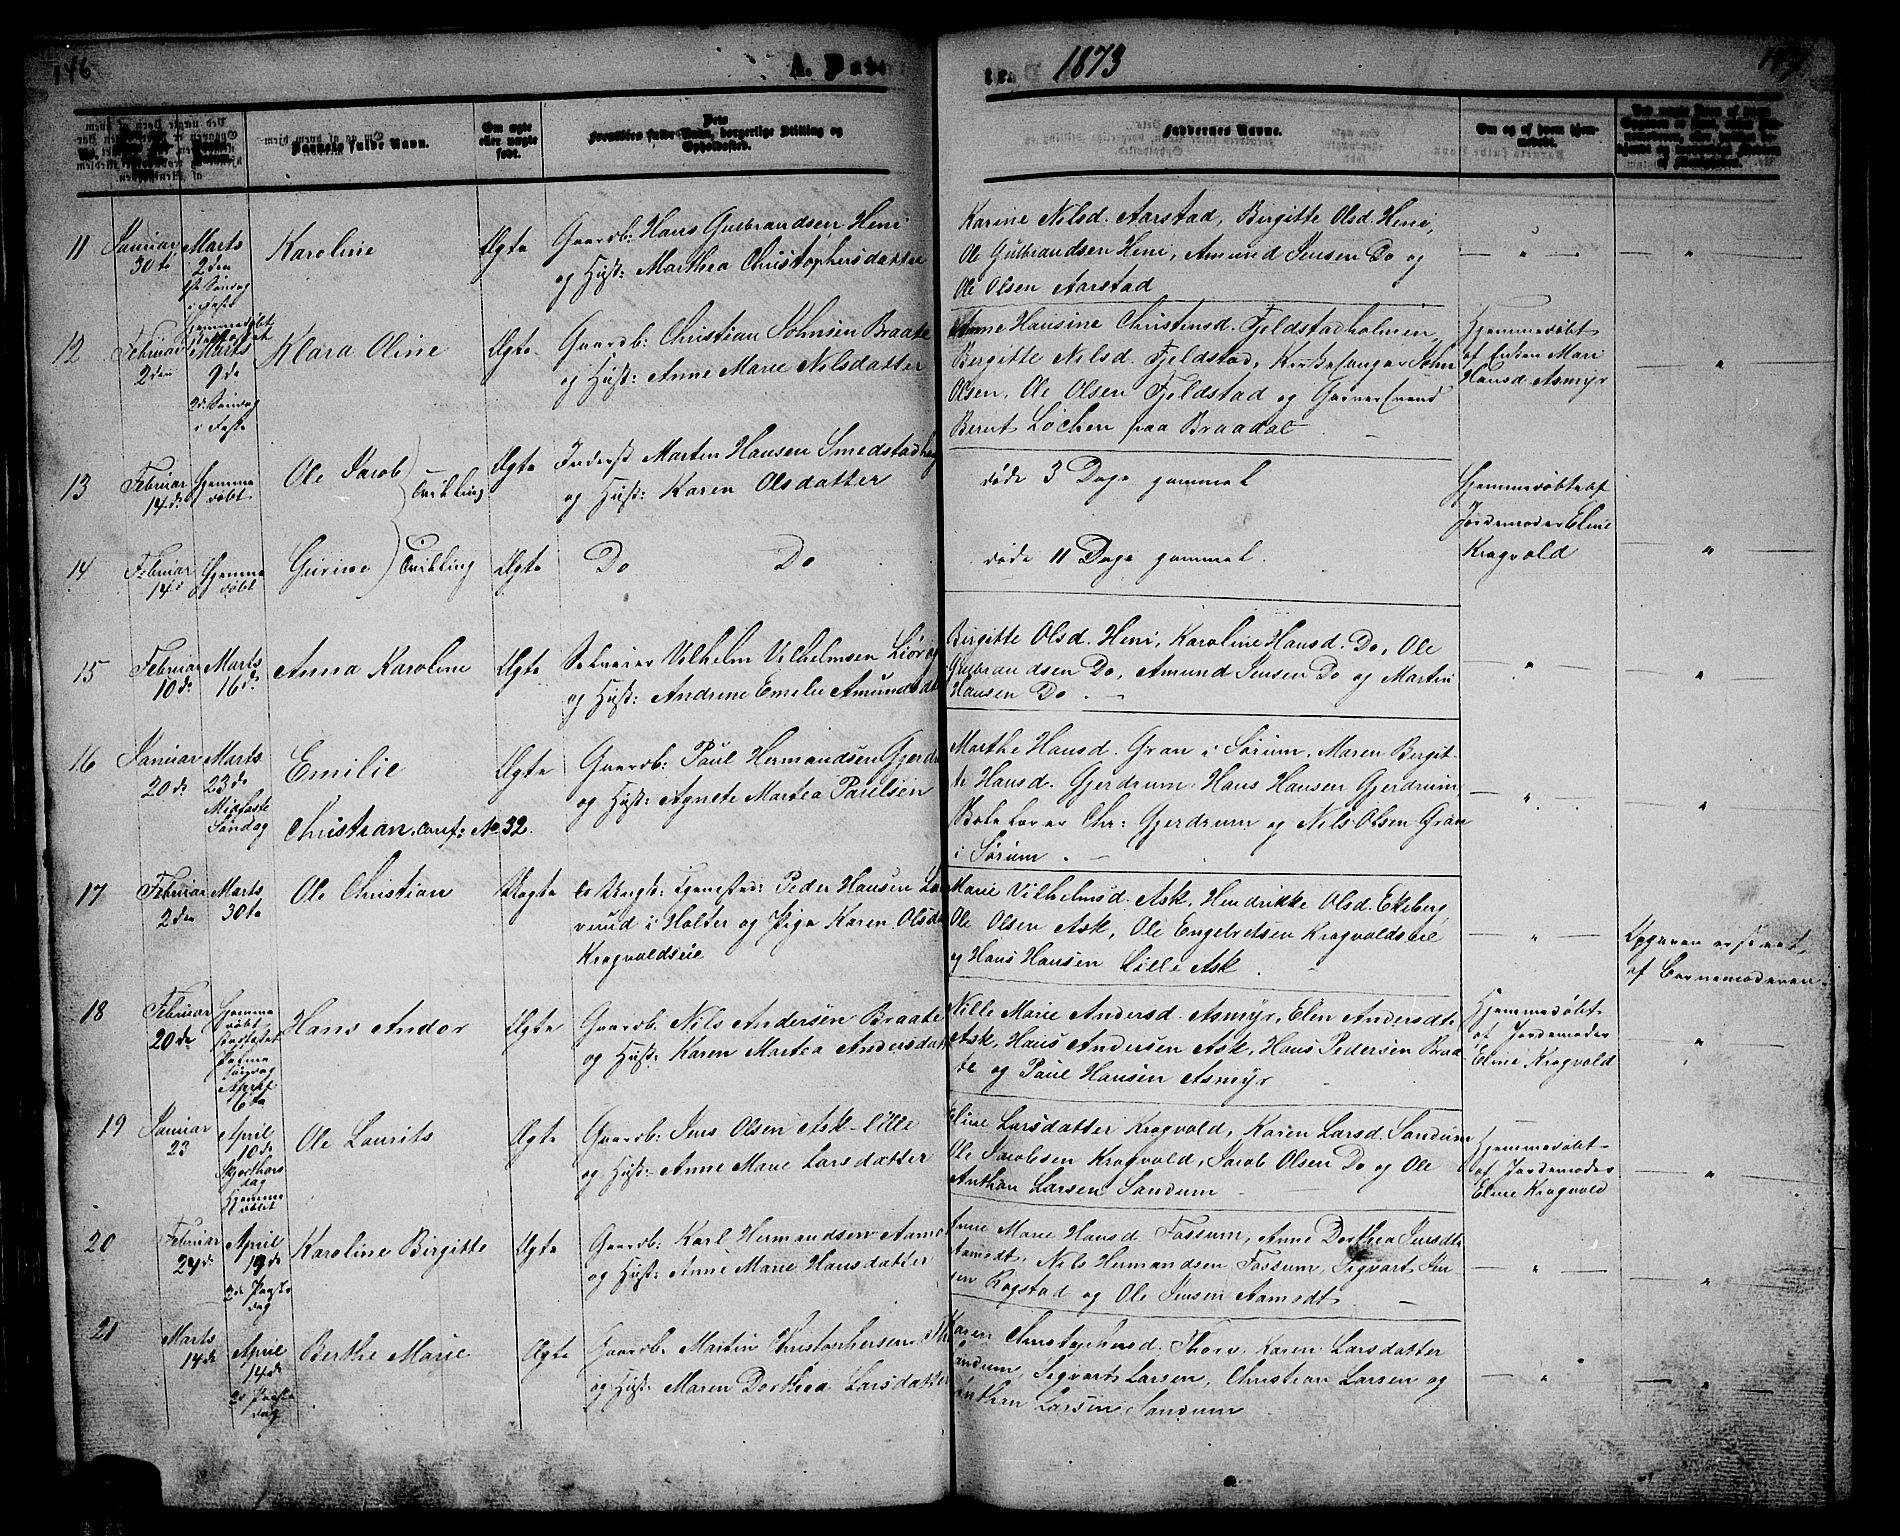 146
A. Døb-
te.
1873
No.
Barnets fulde Navn.
Om ægte eller uægte født.
Forældres fulde Navn, borgerlige Stilling og Opholdssted.
Faddernes Navne.
Om og af hvem hjemmedøbt.
11
Januar 30te
Marts 2den
1ste Søndag i Faste
Karoline
Ægte
Gaardb: Hans Gulbrandsen Heni
og Hust: Marthea Christophersdatter
Karine Nilsd. Aarstad, Birgitte Olsd. Heni,
Ole Gulbrandsen Heni, Amund Jensen Do og
Ole Olsen Aarstad
12
Februar 2den
Hjemmedøbt
Marts 9de
2d. Søndag i Faste
Klara Oline
Ægte
Gaardb: Christian Johnsen Braate
og Hust: Anne Marie Nilsdatter
Anne Hansine Christensd. Fjeldstadholmen,
Birgitte Nilsd. Fjeldstad, Kirkesanger John
Olsen, Ole Olsen Fjeldstad og Garversvend
Bernt Løchen paa Braadal
Hjemmedøbt
af Enken Mari
Hansd. Asmyr
13
Februar 14d.
Hjemmedøbt
Ole Jacob
Tvilling
Ægte
Inderst Marten Hansen Smedstad
og Hust: Karen Olsdatter
døde 3 Dage gammel
Hjemmedøbt af
Jordemoder Eline
Kragvold
14
Februar 14d
Hjemmedøbt
Gurine
Tvilling
Ægte
Do Do
døde 11 Dage gammel.
15
Februar 10d.
Marts 16d.
Anna Karoline
Ægte
Selveier Vilhelm Vilhelmsen
og Hust: Andrine Emilie Amundsdt
Birgitte Olsd. Heni, Karoline Hansd. Do, Ole
Gulbrandsen Do, Amund Jensen Do og Martin
Hansen Do.
16
Januar 20d.
Marts 23de
Midfaste Søndag
Emilie
Christian, conf: No 32.
Ægte
Gaardb: Paul Hermandsen Gjerdr
og Hust: Agnete Martea Paulsen
Marthe Hansd. Gran i Sørum, Maren Birgit-
te Hansd. Gjerdrum, Hans Hansen Gjerdrum
Chr: Gjerdrum og Nils Olsen Gran
i Sørum.
17
Februar 2den
Marts 30te
Ole Christian
Uægte
Ungk: Tjenestdr: Peder Hansen
rud i Holter og Pige Karen Olsd
Kragvoldseie
Marie Vilhelmsd. Ask, Hendrikke Olsd. Ekeberg,
Ole Olsen Ask, Ole Engebretsen Kragvoldseie
og Hans Hansen Lille Ask.
Opgaven er skeet
af Barnemoderen.
18
Februar 20de
Hjemmedøbt
Palme Søndag
April 6te
Hans Andor
Ægte
Gaardb. Nils Andersen Braate
og Hust: Karen Martea Andersdatt
Nille Marie Andersd. Asmyr, Elen Andersdt
Ask, Hans Andersen Ask, Hans Pedersen Braa-
te og Paul Hansen Asmyr
Hjemmedøbt
af Jordemoder
Eline Kragvold
19
Januar 23
April 10d
Skjærthorsdag
Hjemmedøbt
Ole Laurits
Ægte
Gaardb: Jens Olsen Ask-lille
og Hust: Anne Marie Larsdatter
Eline Larsdatter Kragvold, Karen Larsd. Sandum
Ole Jacobsen Kragvold, Jacob Olsen Do og Ole
Anthon Larsen Sandum
Hjemmedøbt
af Jordemoder
Eline Kragvold
20
Februar 24d.
April
2d Paaskedag
Karoline Birgitte
Ægte
Gaardb: Karl Hermandsen Aamo
og Hust: Anne Marie Hansdatter
Anne Marie Hansd Fossum, Anne Dorthea Jensdt
Aamodt, Nils Hermandsen Fossum, Sigvart Jen
sen Rogstad og Ole Jensen Aamodt
21
Marts 14de
April 14de
2d Paaskedag
Berthe Marie
Ægte
Gaardb. Martin Christophersen Th
og Hust: Maren Dorthea Larsdatter
Karen Christophersd. Thorv, Karen Larsdatter
Sandum, Sigvart Larsen, Christian Larsen og
Anthon Larsen Sandum